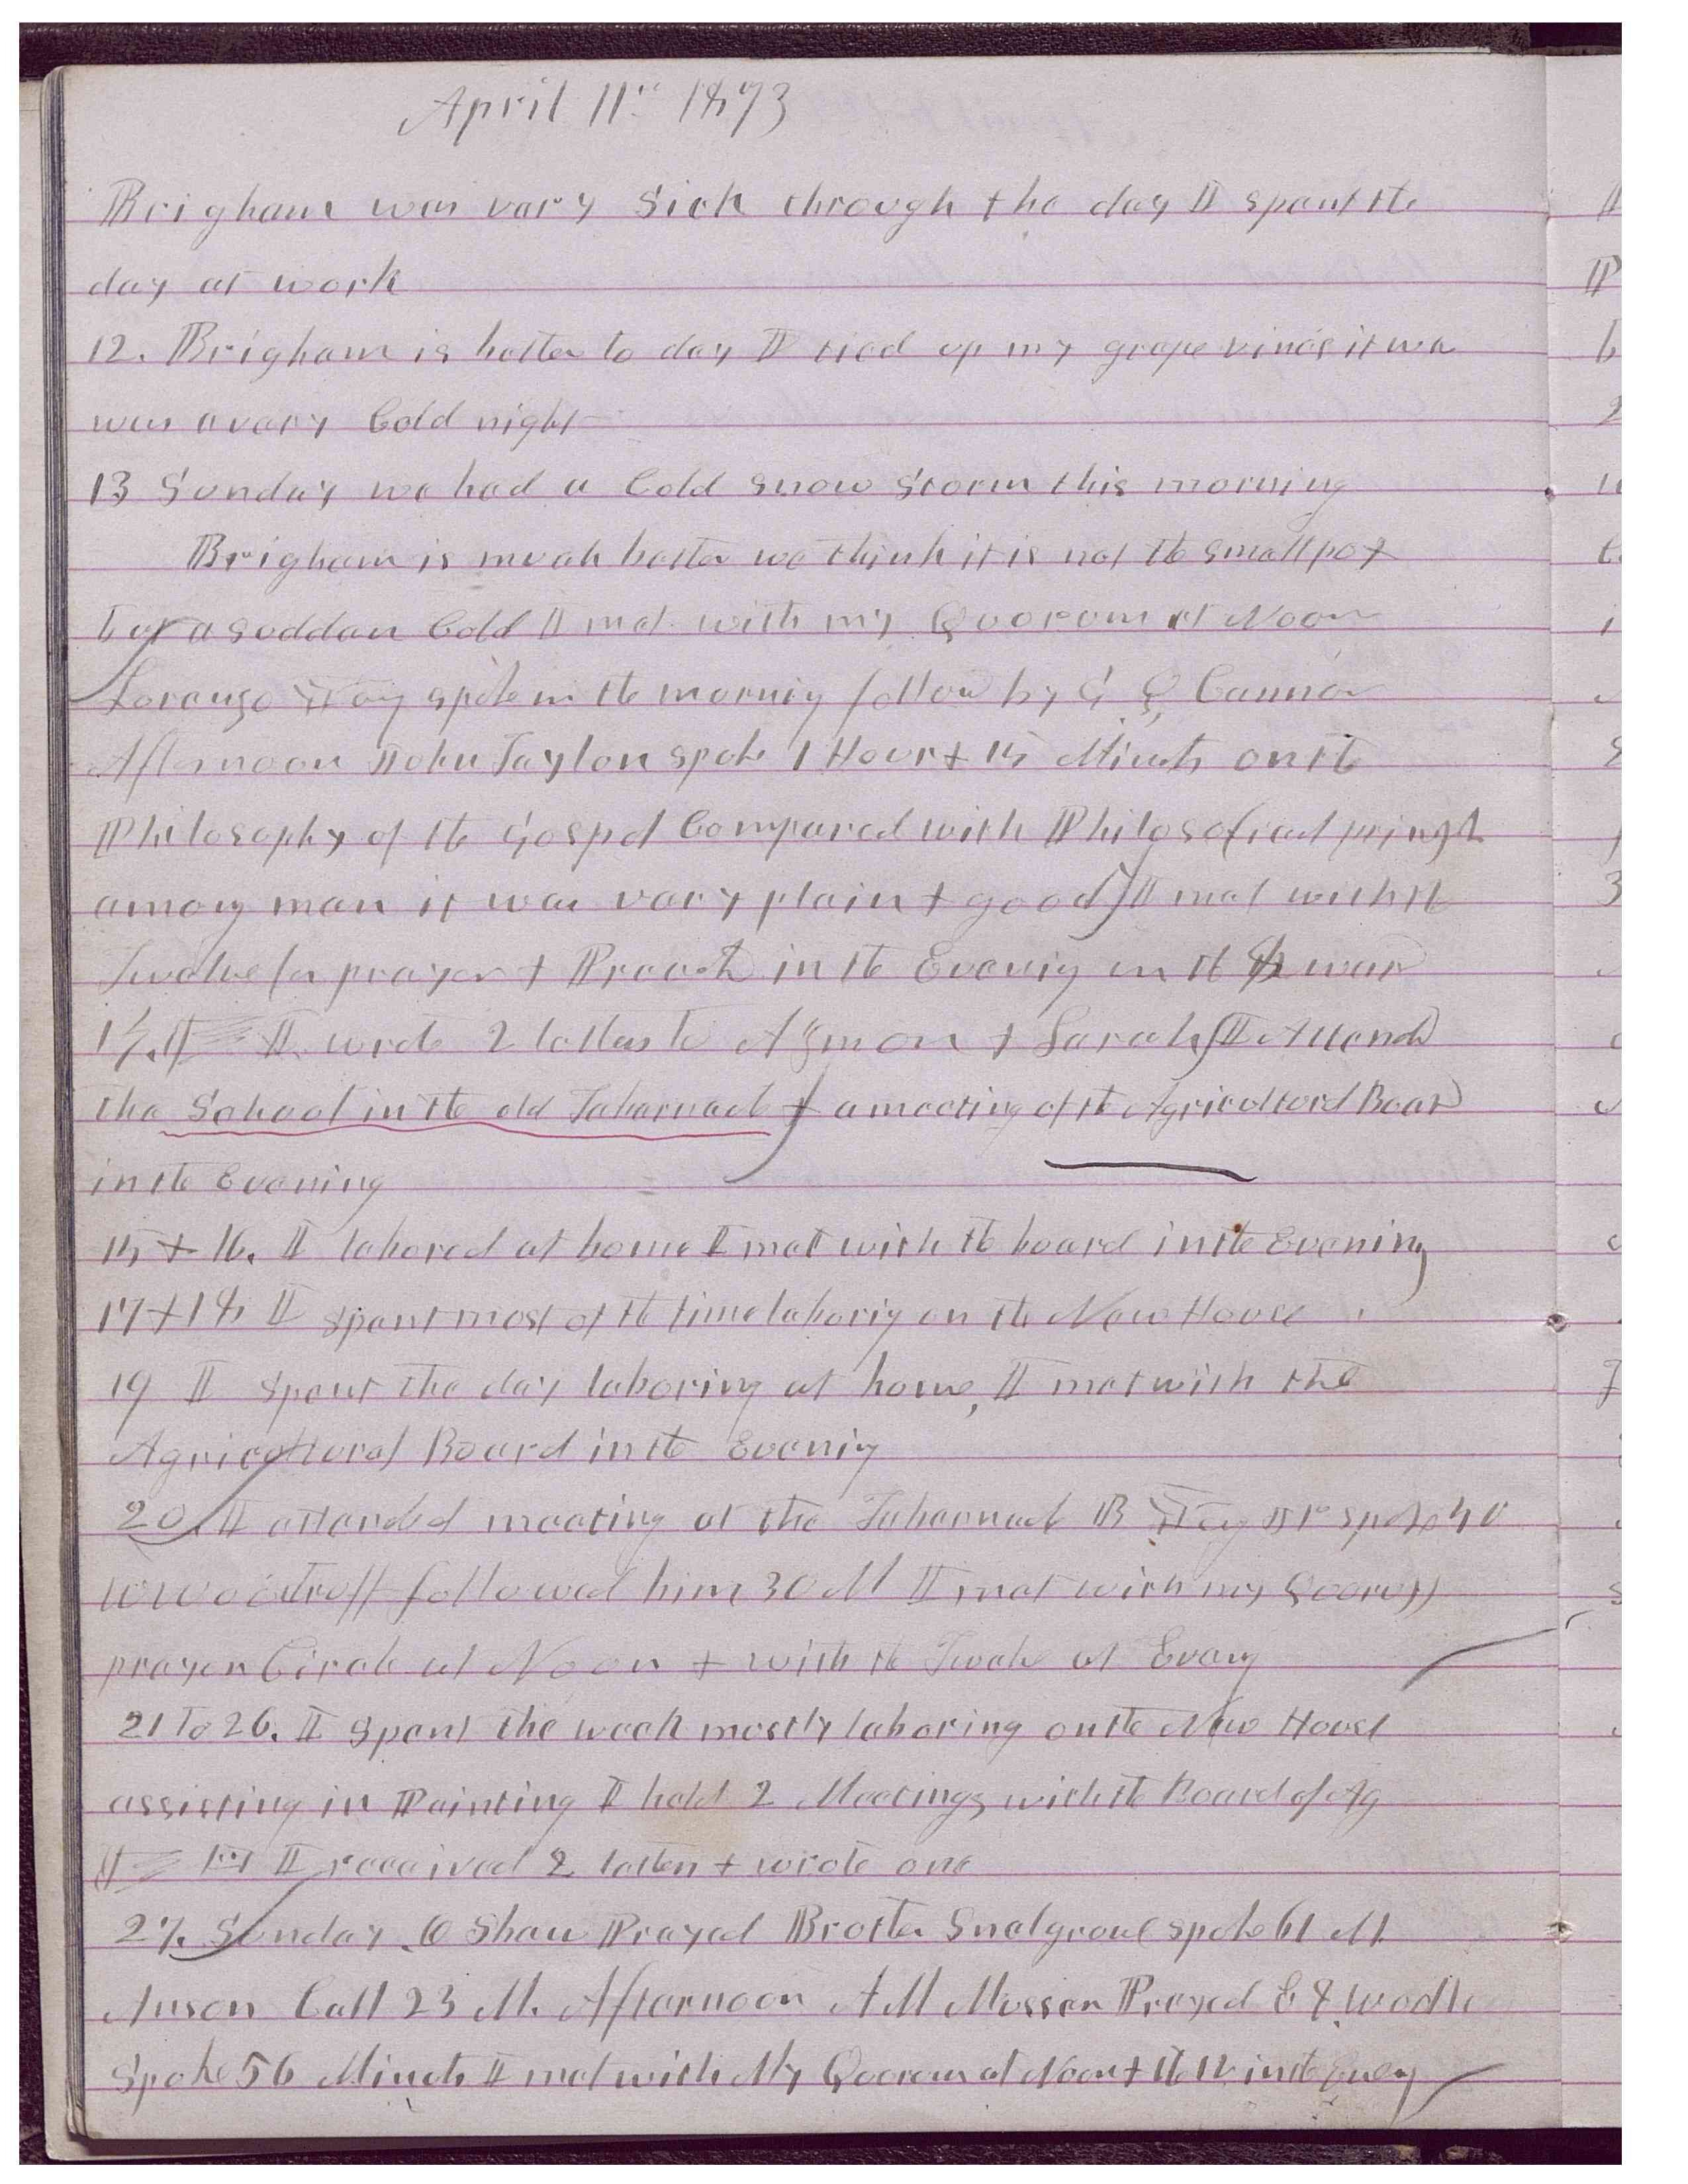 April 11th 1873
Brigham was vary sick through the day I spent the
day at work
12. Brigham is better to day I tied up my grape vines it wa
was a vary Cold night
13 Sunday we had a Cold snow storm this morning
Brigham is much better we think it is not the small pox
but a suddan Cold I met with my Quorum at Noon
Lorenzo Young spoke in the morning follow by G Q Cannon
Afternoon John Taylor spoke 1 Hour & 15 Minuts on the
Philosophy of the Gospel Compared with Philosofical
among man it was vary plain & good I met with the
Twelve for prayer & Preach in the Evenig in the 8 ward
14. I wrote 2 letters to Azmon & Sarah I Attend
the School in the old Tabernacle & a meeting of the Agricultural Board
in the Evening
15 & 16. I labored at home I met with the board in the Evening
17 & 18 I spent most of the time laborig on the New House
19 I spent the day laboring at home, I met with the
Agricultural Board in the Evenig
20 I attended meeting at the Tabernacle B Young Jr spoke 40
W Woodruff followed him 30 M I met with my Quorum
prayer Circle at Noon & with the Twelve at Eveng
21 To 26. I spent the week mostly laboring on the New House
assisting in Painting I held 2 Meetings with the Board of Ag
I received 2 letters & wrote one
27. Sunday O Shaw Prayed Brother Snelgrove spoke 61 M.
Anson Call 23 M. Afternoon A M Musser Prayed E
Spoke 56 Minuts I met with My Quorum at Noon & the 12 in the Eveng